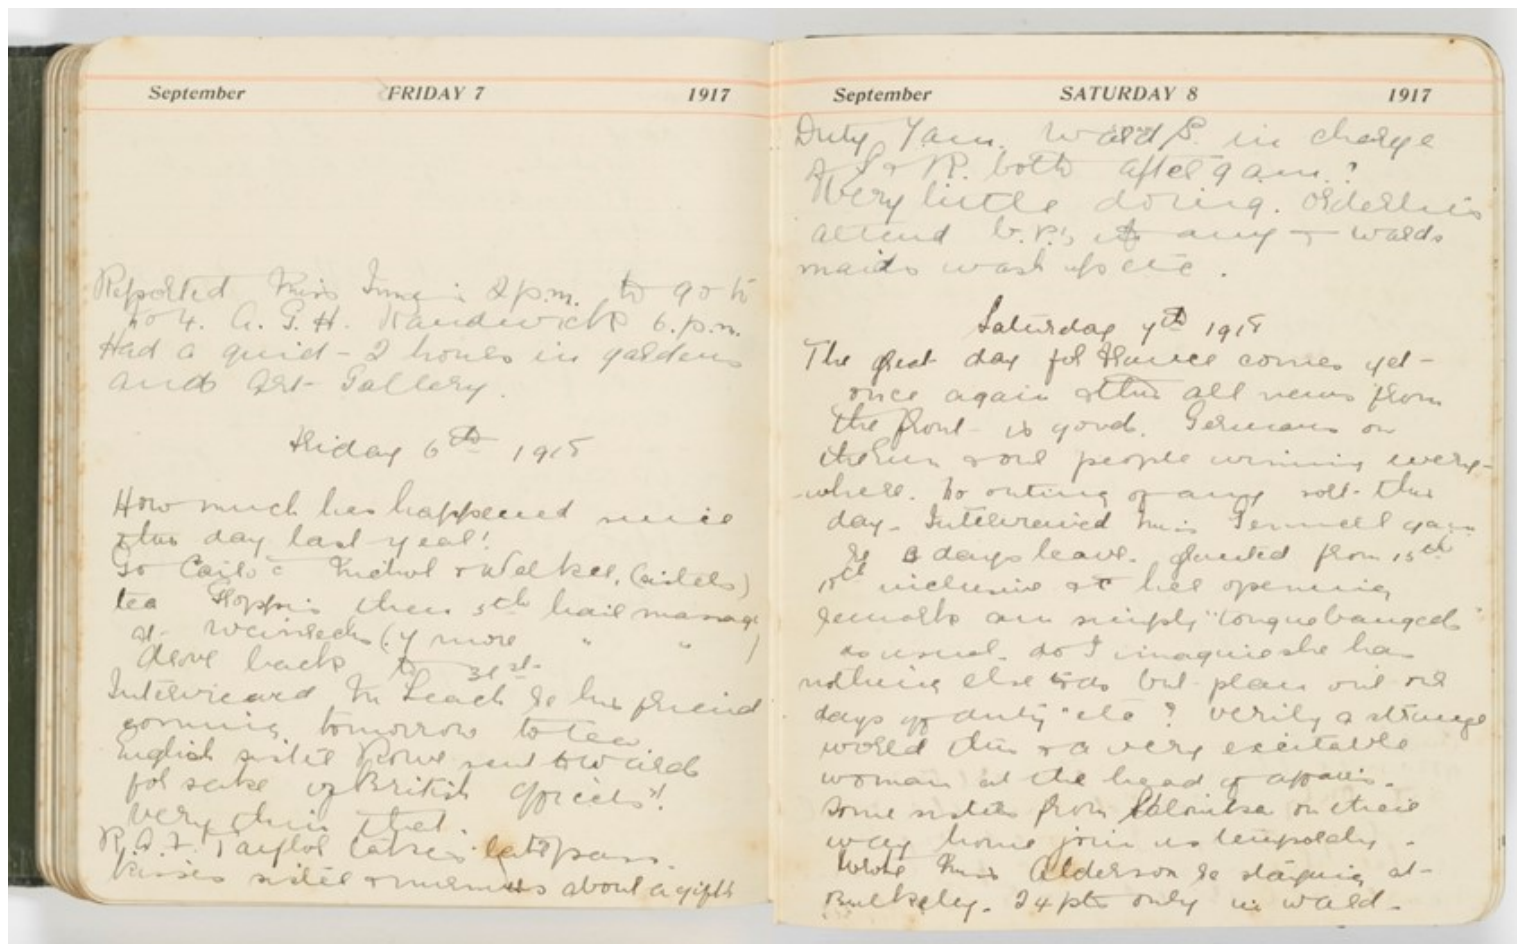 September FRIDAY 7 1917
Reported Miss 2 p.m. to go to
No 4. A. G. H. Randwick 6. p.m.
Had a quiet 2 hours in gardens
and Art Gallery.
Friday 6th 1918
How much has happened since
this day last year!
To Cairo c Nichol & Walker, (sisters)
tea Groppis then 5th hair massage
at (7 more " " )
Drove back to 31st.
Interviewed Mr Leach re his friend
coming tomorrow to tea
English sister Rowe sent to wards
for sake of British officers"!
Very thin that.
Taylor takes late pass.
Kisses sister & murmurs about a gift
September SATURDAY 8 1917
Duty 7 am. Ward S. in charge
of S & R. both after 9 am.?
Very little doing. Orderlies
attend any & wards
maids wash up etc.
Saturday 7th 1918
The great day for France comes yet
once again & this all news from
the front is good. Germans on
the run & our people winning every-
where. No outing of any sort this
day. Interviewed Miss 9 am
re days leave. Granted from 15th
inclusive at her opening
remarks am simply "tonguebanged"
as usual. do I imagine she has
nothing else to do but plan out our
days off duty" etc? Verily a strange
world this & a very excitable
woman at the head of affairs.
Some sisters from Salonika on their
way home join us temporarily.
Wrote Miss Alderson re staying at
Bulkeley. 24 pts only in ward.